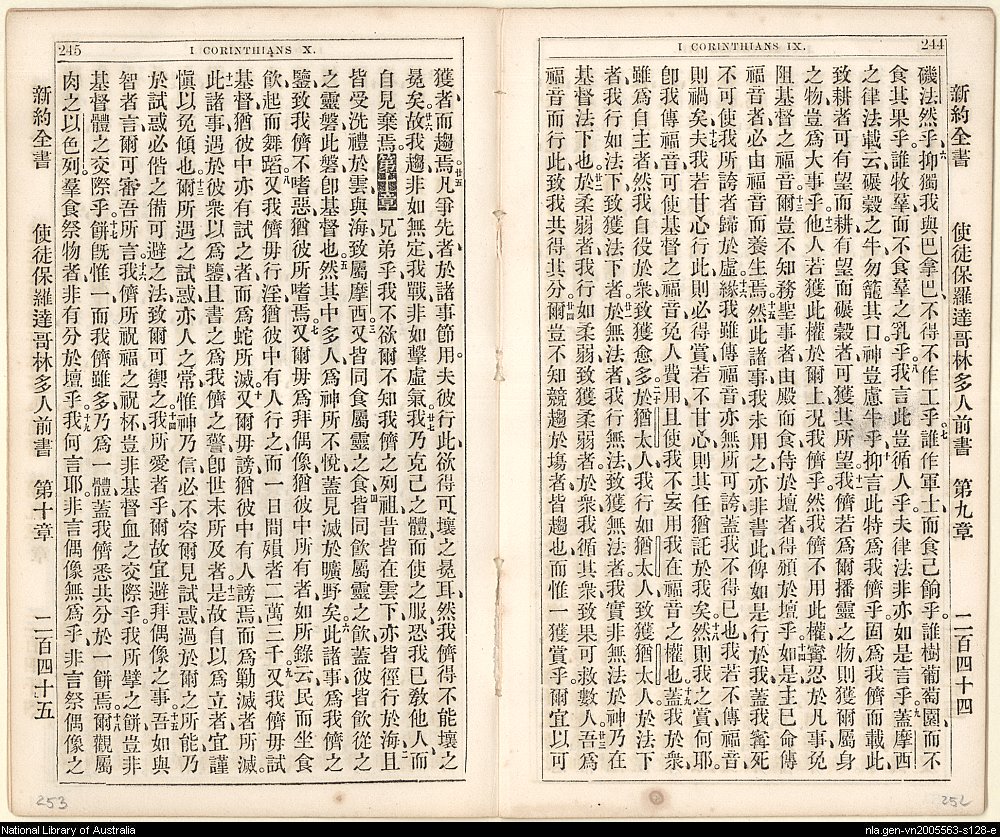 244
I CORINTHIANS IX.
新約全書 使徒保羅達哥林多人前書 第九章 二百四十四
磯法然乎、六抑獨我與巴拿巴、不得不作工乎。七誰作軍士、而食己餉乎。誰樹葡萄園、而不
食其果乎。誰牧羣、而不食羣之乳乎。八我言此、豈循人乎。夫律法非亦如是言乎。九蓋摩西
之律法載云、碾穀之牛、勿籠其口。神豈慮牛乎。十抑言此特為我儕乎。固為我儕而載此、
致耕者可有望而耕、有望而碾穀者、可獲其所望。十一我儕若為爾播靈之物、則獲爾屬身
之物、豈為大事乎。十二他人若獲此權於爾上、況我儕乎。然我儕不用此權、寗忍於凡事、免
阻基督之福音。十三爾豈不知務聖事者、由殿而食、侍於壇者、得頒於壇乎。十四如是主已命傳
福音者、必由福音而養生焉。十五然此諸事、我未用之、亦非書此、俾如是行於我、蓋我寗死、
不可使我所誇者歸於虛。十六緣我雖傳福音、亦無所可誇、蓋我不得已也、我若不傳福音、
則禍矣夫。十七我若甘心行此、則必得賞、若不甘心、則其任猶託於我矣。十八然則我之賞何耶。
卽我傳福音、可使基督之福音免人費用、且使我不妄用我在福音之權也。十九蓋我於衆、
雖為自主者、然我自役於衆、致獲愈多。二十於猶太人、我行如猶太人、致獲猶太人、於法下
者、我行如法下、致獲法下者、廿一於無法者、我行如無法、致獲無法者、我實非無法於神、乃在
基督法下也。廿二於柔弱者、我行如柔弱、致獲柔弱者、於衆、我循其衆、致果可救數人、廿三吾為
福音而行此、致我共得其分。廿四爾豈不知競趨於塲者、皆趨也、而惟一獲賞乎。爾宜以可
245
I CORINTHIANS X.
獲者而趨焉。廿五凡爭先者、於諸事節用。夫彼行此、欲得可壞之冕耳、然我儕得不能壞之
冕矣。廿六故我趨、非如無定、我戰、非如擊虛氣、廿七我乃克己之體、而使之服、恐我已敎他人、而
自見棄焉。第十章 一兄弟乎、我不欲爾不知我儕之列祖、昔皆在雲下、亦皆徑行於海、二且
皆受洗禮於雲與海、致屬摩西、三又皆同食屬靈之食、四皆同飲屬靈之飲、蓋彼皆飲從之
之靈磐、此磐卽基督也。五然其中多人為神所不悅、蓋見滅於曠野矣。六此諸事為我儕之
鑒、致我儕不嗜惡、猶彼所嗜焉。七又爾毋為拜偶像、猶彼中所有者、如所錄云、民而坐食
飲、起而舞蹈。八又我儕毋行淫、猶彼中有人行之、而一日間殞者二萬三千。九又我儕毋試
基督、猶彼中亦有試之者、而為蛇所滅。十又爾毋謗、猶彼中有人謗焉、而為勦滅者所滅。
十一此諸事遇於彼衆、以為鑒、且書之為我儕之警、卽世末所及者。十二是故自以為立者、宜謹
愼以免傾也。十三爾所遇之試惑、亦人之常、惟神乃信、必不容爾見試惑過於爾之所能、乃
於試惑、必偕之備可避之法、致爾可禦之。十四我所愛者乎、爾故宜避拜偶像之事。十五吾如與
智者言、爾可審吾所言。十六我儕所祝福之祝杯、豈非基督血之交際乎。我所擘之餅、豈非
基督體之交際乎。十七餅旣惟一、而我儕雖多、乃為一體、蓋我儕悉共分於一餅焉。十八爾觀屬
肉之以色列羣、食祭物者、非有分於壇乎。十九我何言耶、非言偶像無為乎、非言祭偶像之
新約全書 使徒保羅達哥林多人前書 第十章 二百四十五
253
252
National Library of Australia
nla.gen-vn2005563-s128-e